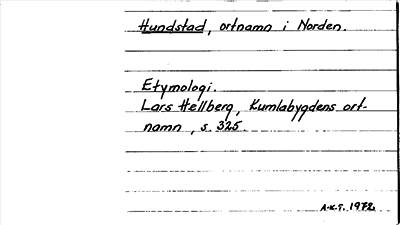 Hundstad, ortnamn i Norden.
Etymologi.
Lars Hellberg, Kumlabygdens ort-
namn, s. 325.
A-K.T. 1972.